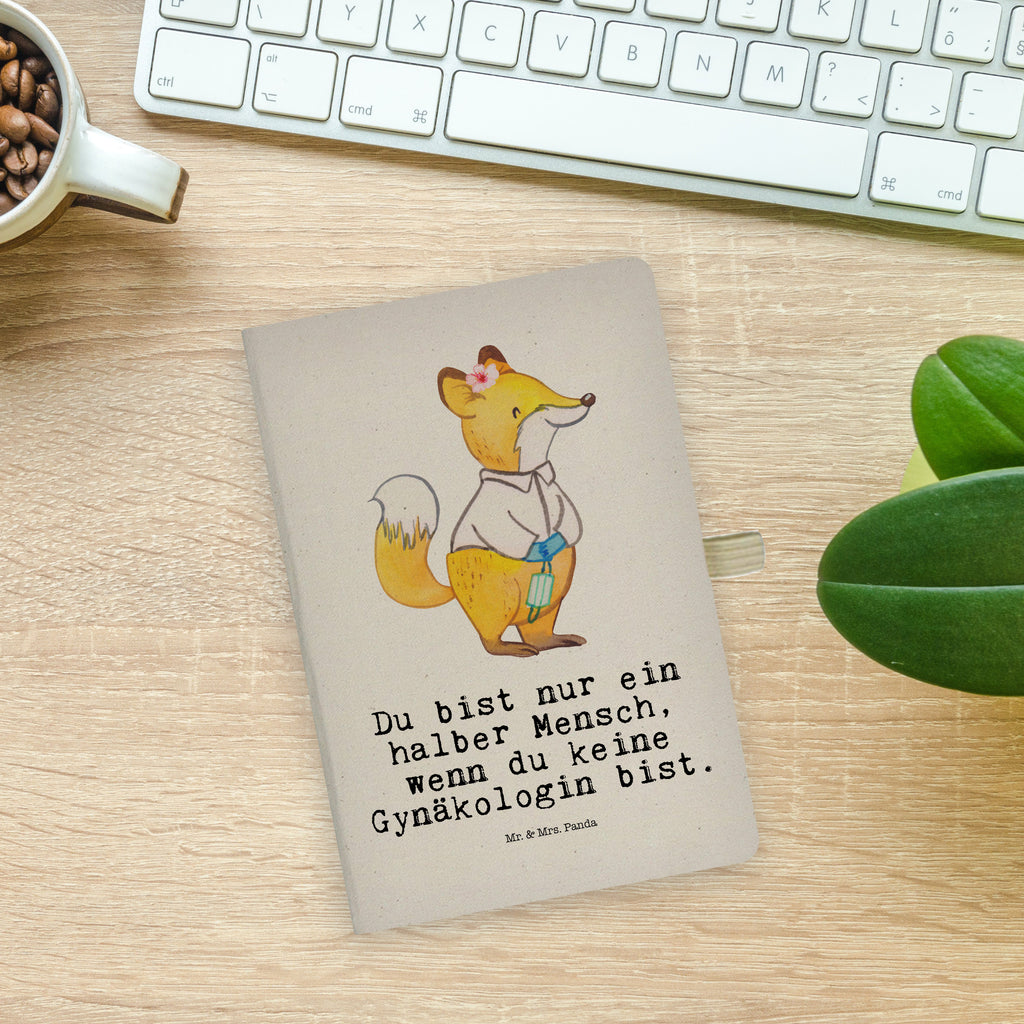 Y X C V B N M ? < : > -
K L Ö
ctrl alt cmd ⌘ ⌘ cmd
Du bist nur ein
halber Mensch,
wenn du keine
Gynäkologin bist.
Mr. & Mrs. Panda